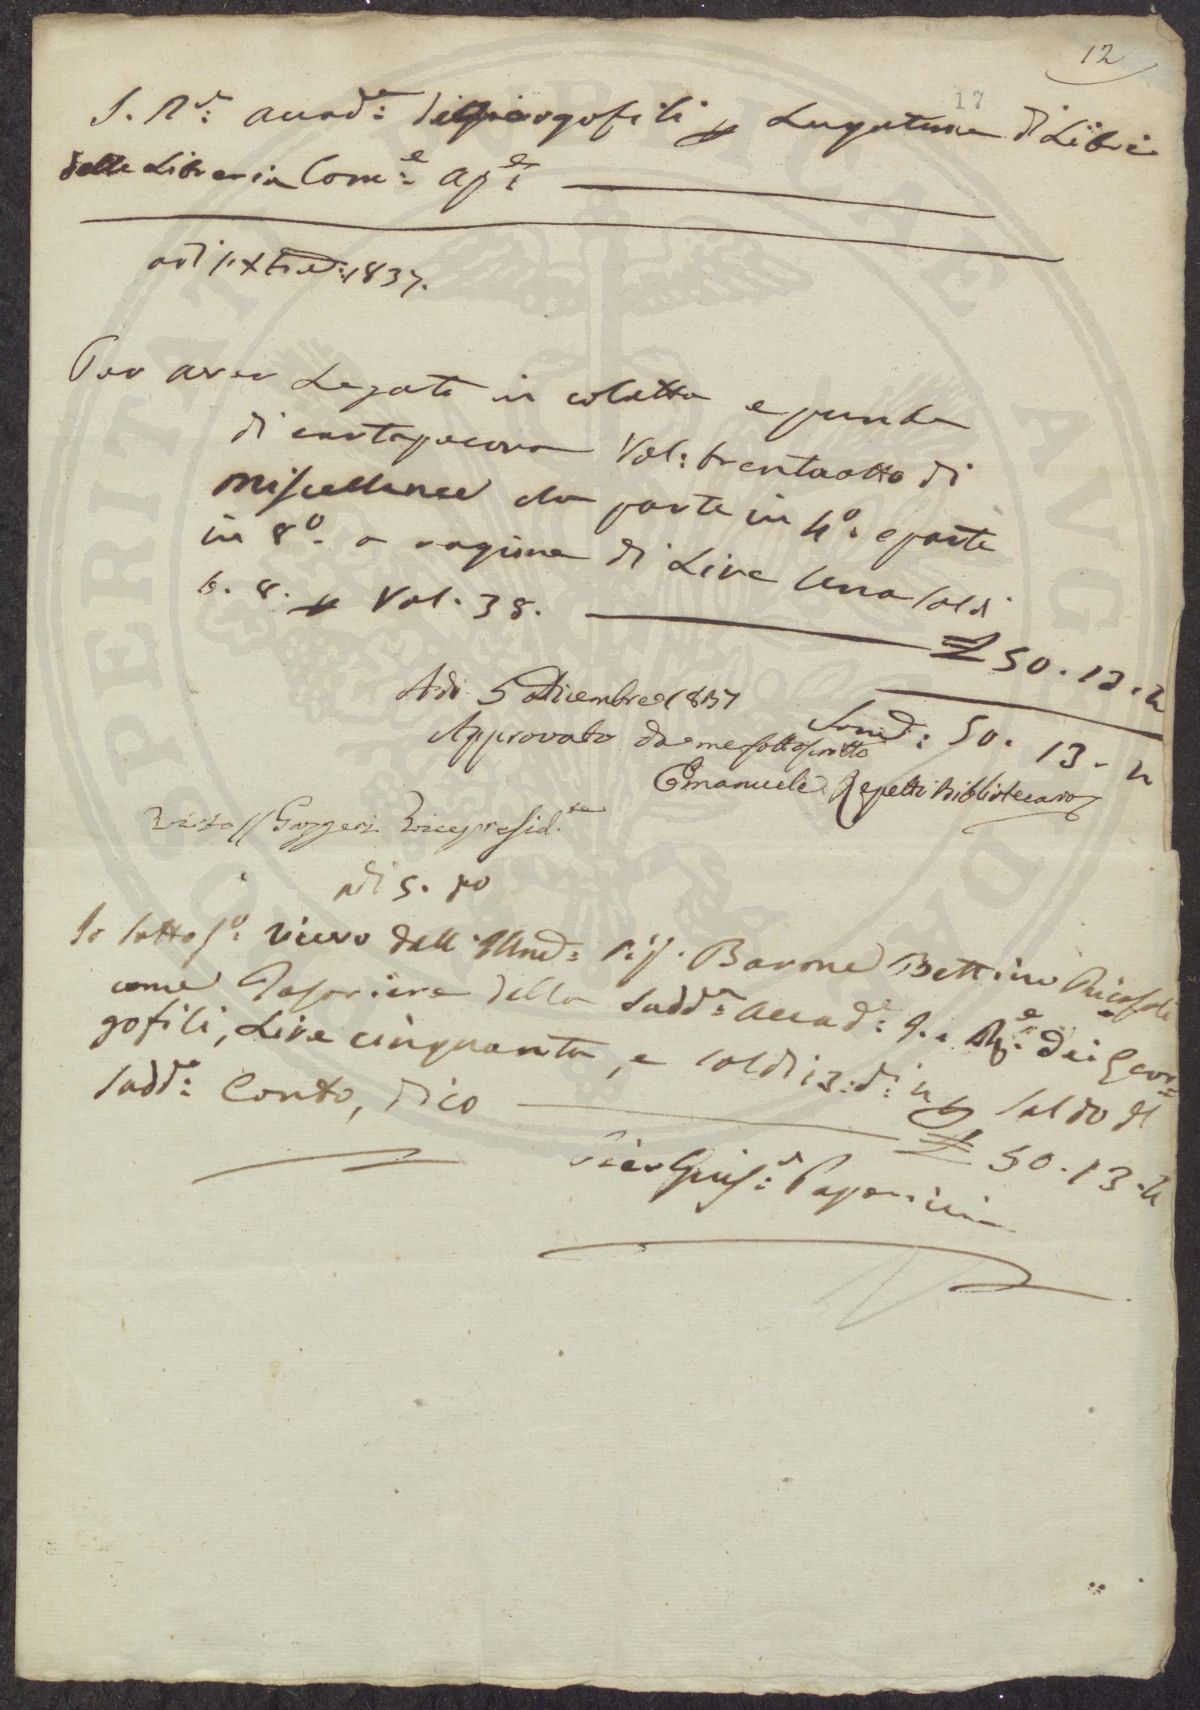 12
17
I. R.e Accad.a dei Georgofili p Legatura di Libri
della Libreria Com.e
adi p.o Xbre 1837.
Per aver Legati in coletta e punta
di cartapecora Vol: trentaotto di
Miscellanee da parte in 4.o e parte
in 8.o a ragione di Lire Una soldi
6. 8. p Vol. 38. £ 50. 13. 4
Som.a: 50. 13. 4
Adi 5 Dicembre 1837
Approvato da me sottoscritto
Emanuele Repetti Bibliotecario
Visto // Gazzeri Vicepresid.te
adi 5. do
Io sottos.o ricevo dall'Illmo: Sig. Barone Bettino Ricasoli
come Tesoriere della sudd.a Accad.a I. e R.e dei Geor=
gofili, Lire cinquanta, e soldi 13: d: 4 p saldo del
sudd.o Conto, dico £ 50. 13. 4
Pier Gius.e